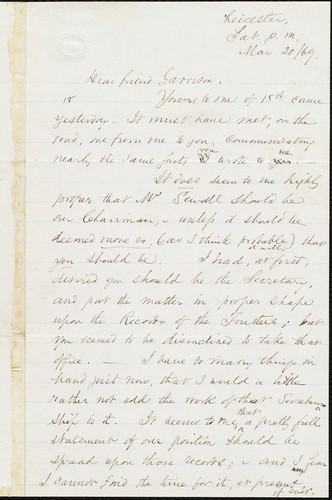 Leicester,
Sat. p.m.
Mar 20/69.
Dear friend Garrison,
18
Yours to me of 18th came
yesterday. It must have met, on the
road, one from me to you, communicating
nearly the same facts you wrote to me.
It does seem to me highly
proper that Mr Sewall should be
our Chairman, – unless it should be
deemed more so, (as I think probable it will,) that
you should be. I had, at first,
desired you should be the Secretary,
and put the matter in proper shape
upon the Records of the Trustees; but
you seemed to be disinclined to take that
office. – I have so many things on
hand just now, that I would a little
rather not add the work of that Secretary
ship to it. It seems to me, that a pretty full
statement of our position should be
spread upon those records; – and I fear
I cannot find the time for it, at present